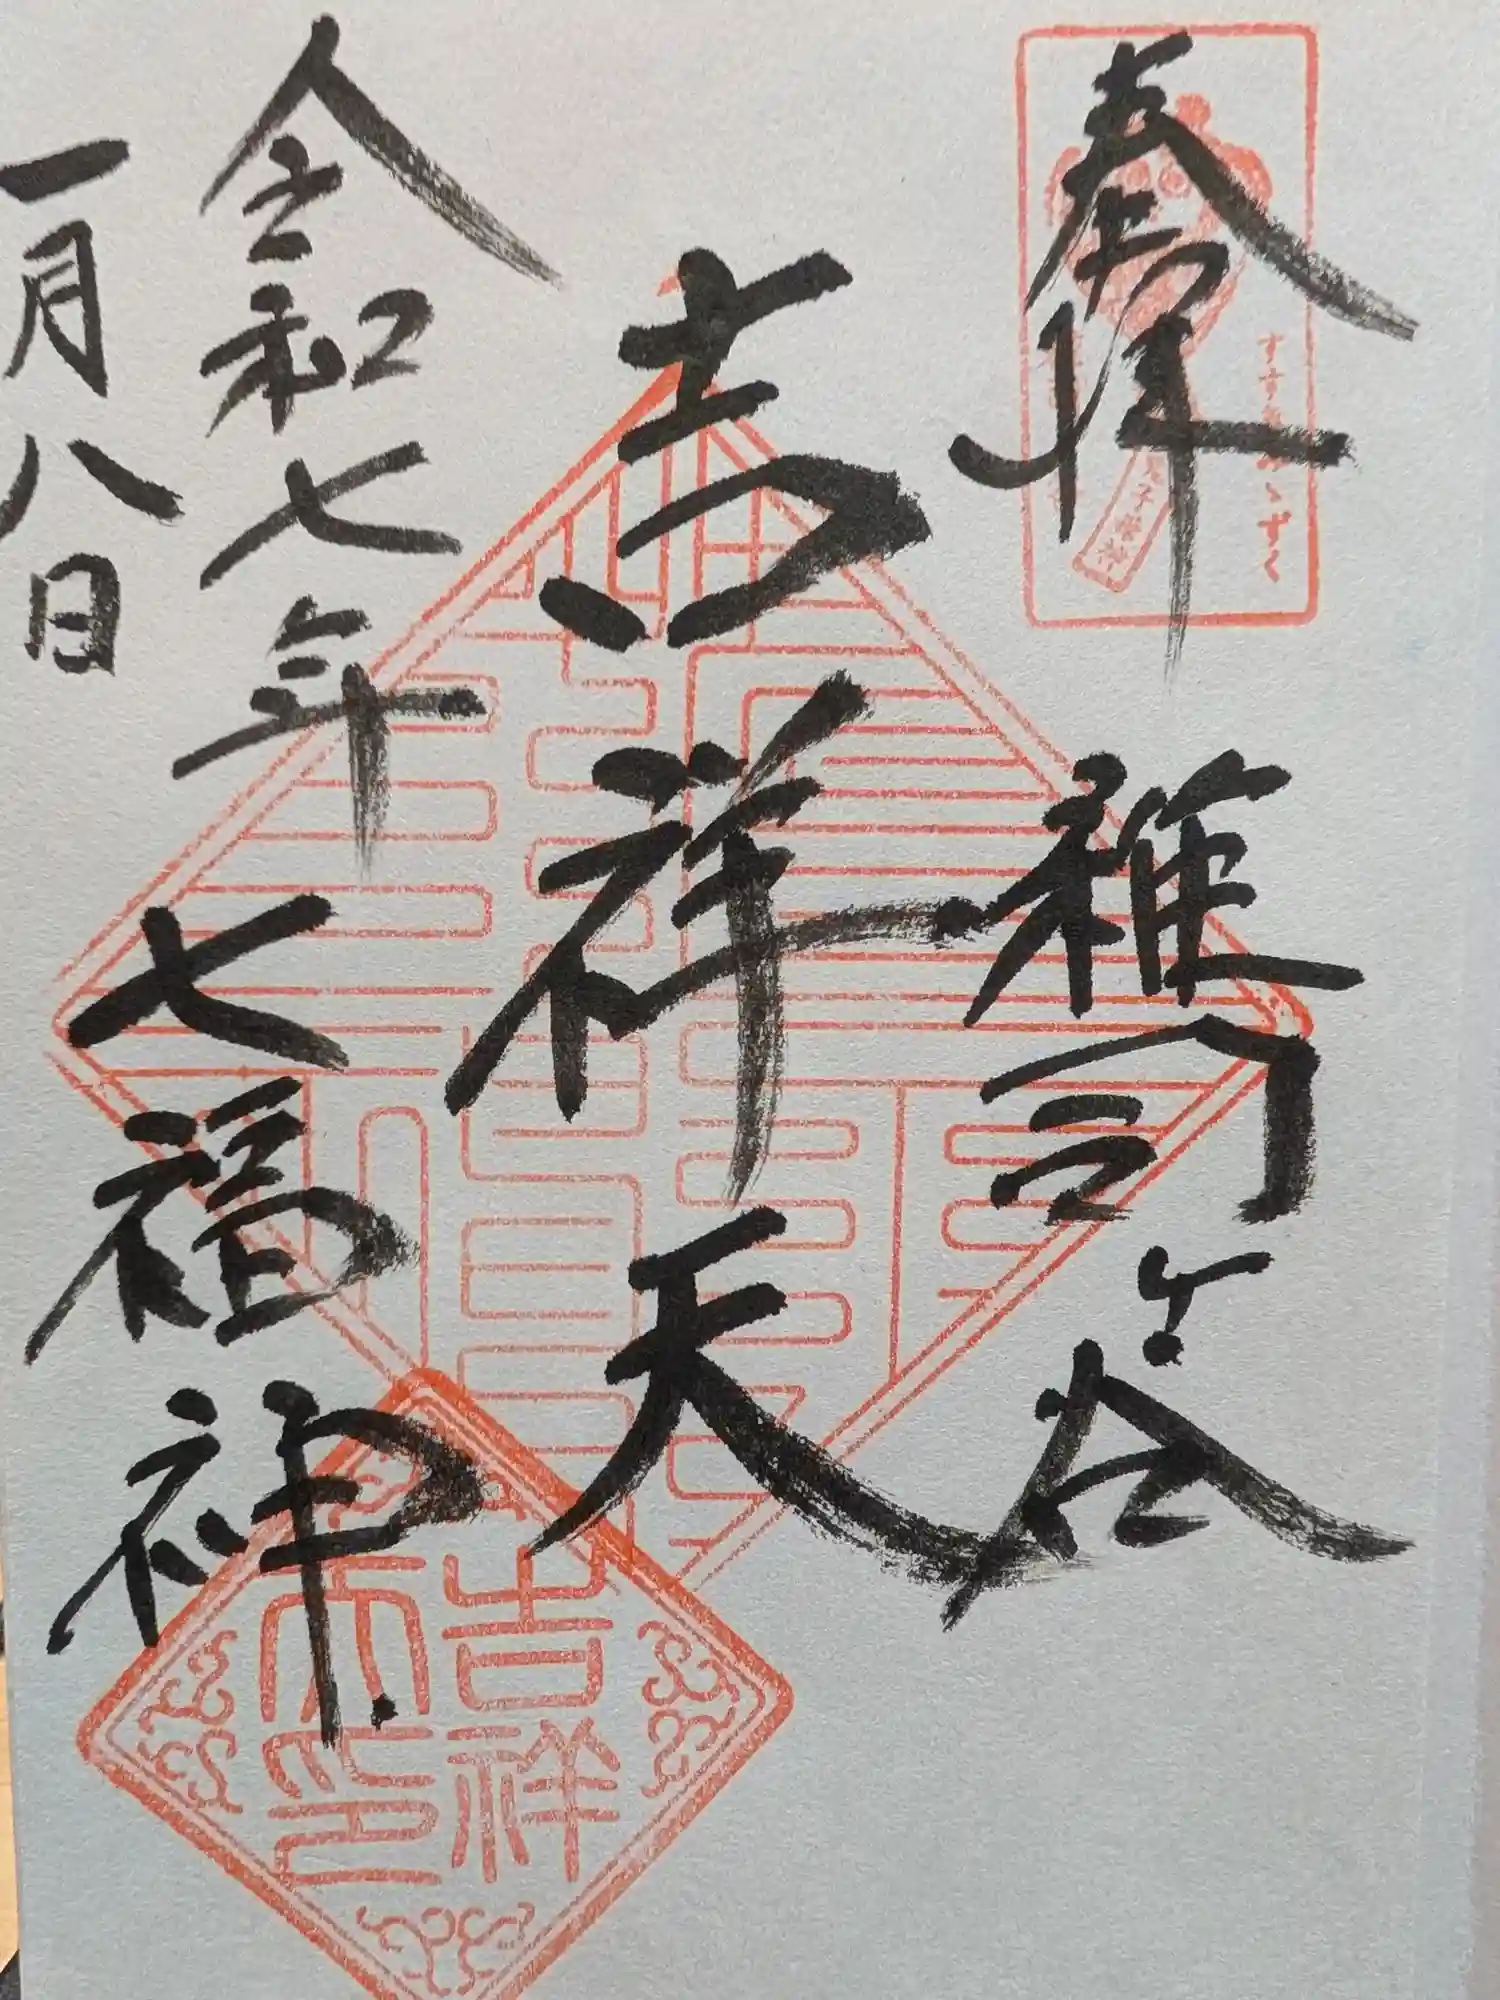 奉拝
雑司ヶ谷
吉祥天
令和七年
一月八日
七福神
すすきみゝずく
吉祥天印